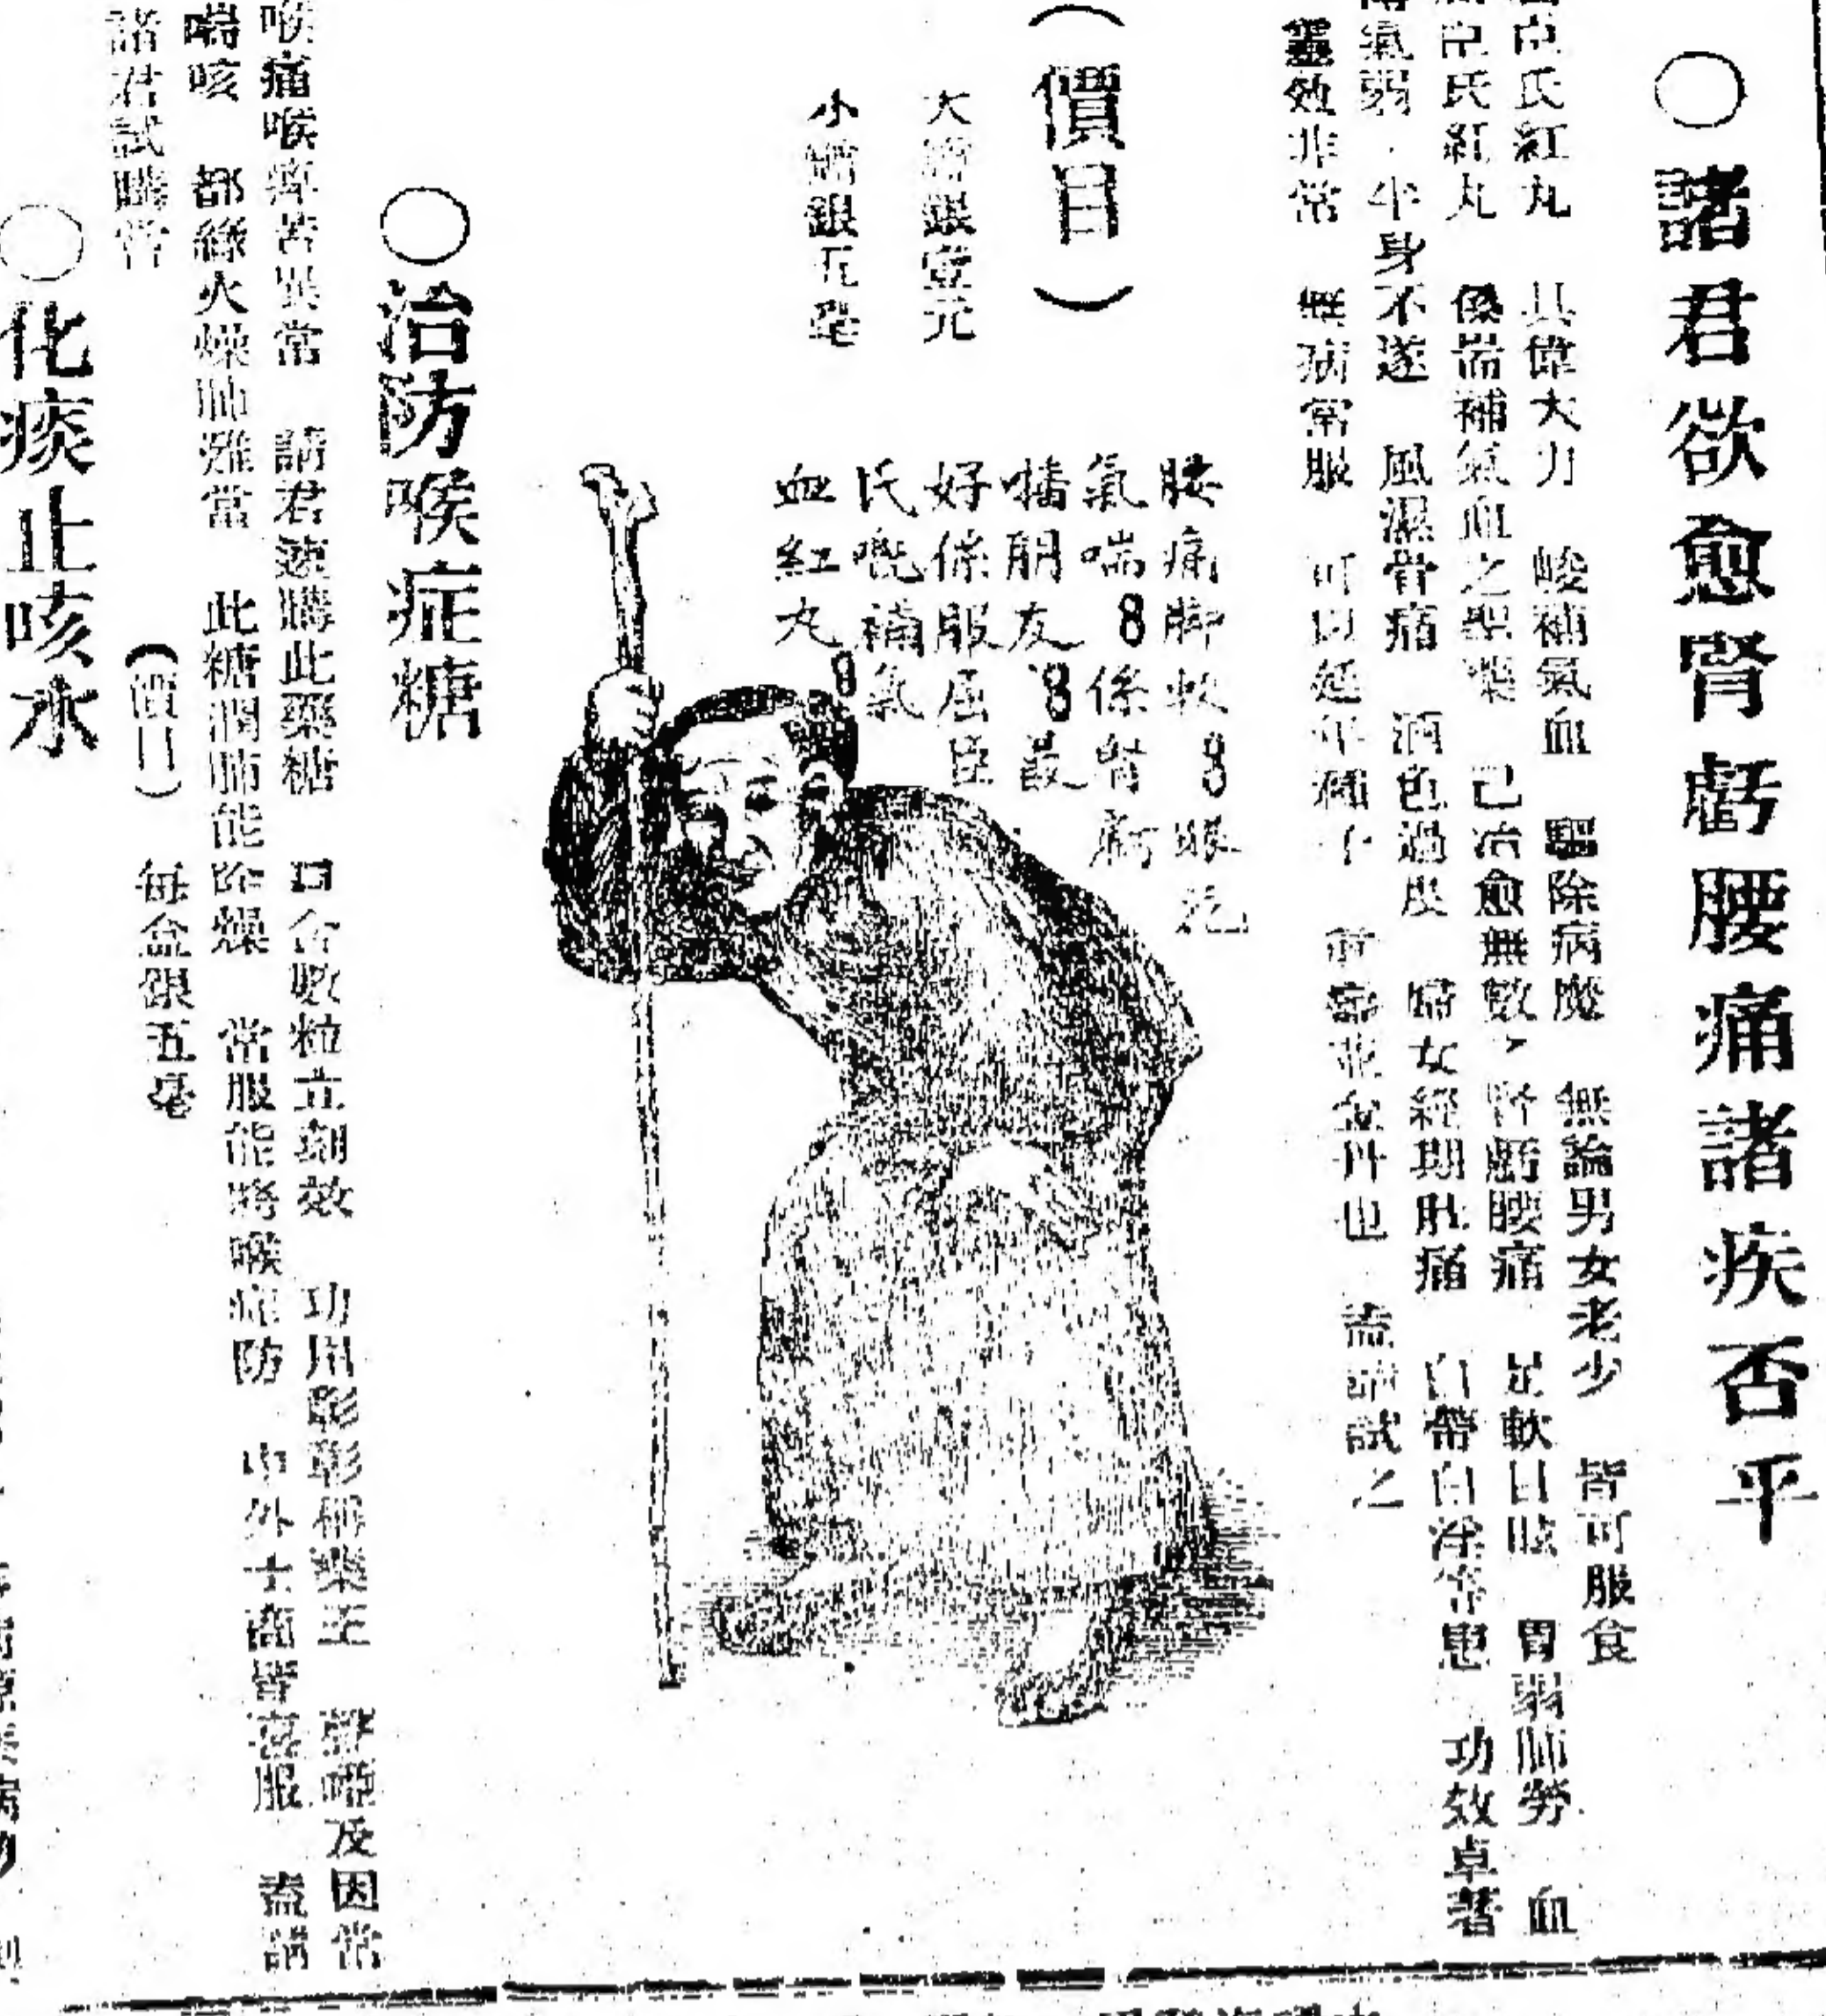 ○諸君欲愈腎虧腰痛諸疾否乎
臣氏紅丸 具偉大力 峻補氣血 驅除病魔 無論男女老少 皆可服食
臣氏紅丸 係耑補氣血之聖藥 已治愈無數 腎虧腰痛 足軟目眩 胃弱肺勞 血
氣弱 半身不遂 風濕骨痛 酒色過度 婦女經期肚痛 白帶白淫等患 功效卓著
靈效非常 無病常服 可以延年種子 金丹也 盍請試之
(價目)
大罇銀壹元
小罇銀五毫
腰痛脚軟 眼花
氣喘 係腎虧
朋友 最
好係服屈臣
氏嘅補氣
血紅丸
○治防喉症糖
喉痛喉痺苦異常 請君速購此藥糖 口含數粒立刻效 功用彰彰稱藥王 聲啞及因常
喘咳 都緣火燥肺難當 此糖潤肺能除燥 常服能將喉症防 中外士商皆喜服 盍請
諸君試購嘗
(價目) 每盒銀五毫
○化痰止咳水